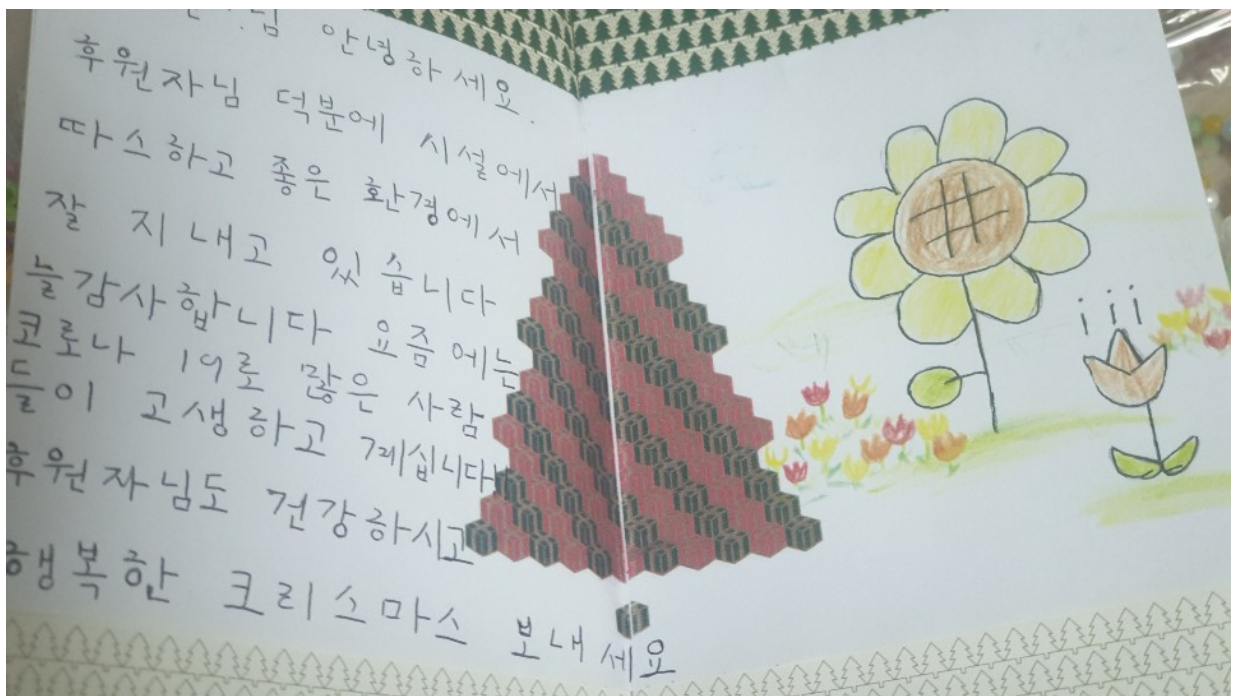 님 안녕하세요.
후원자님 덕분에 시설에서
따스하고 좋은 환경에서
잘 지내고 있습니다
늘감사합니다 요즘에는
코로나 19로 많은 사람
들이 고생하고 계십니다
후원자님도 건강하시고
행복한 크리스마스 보내세요